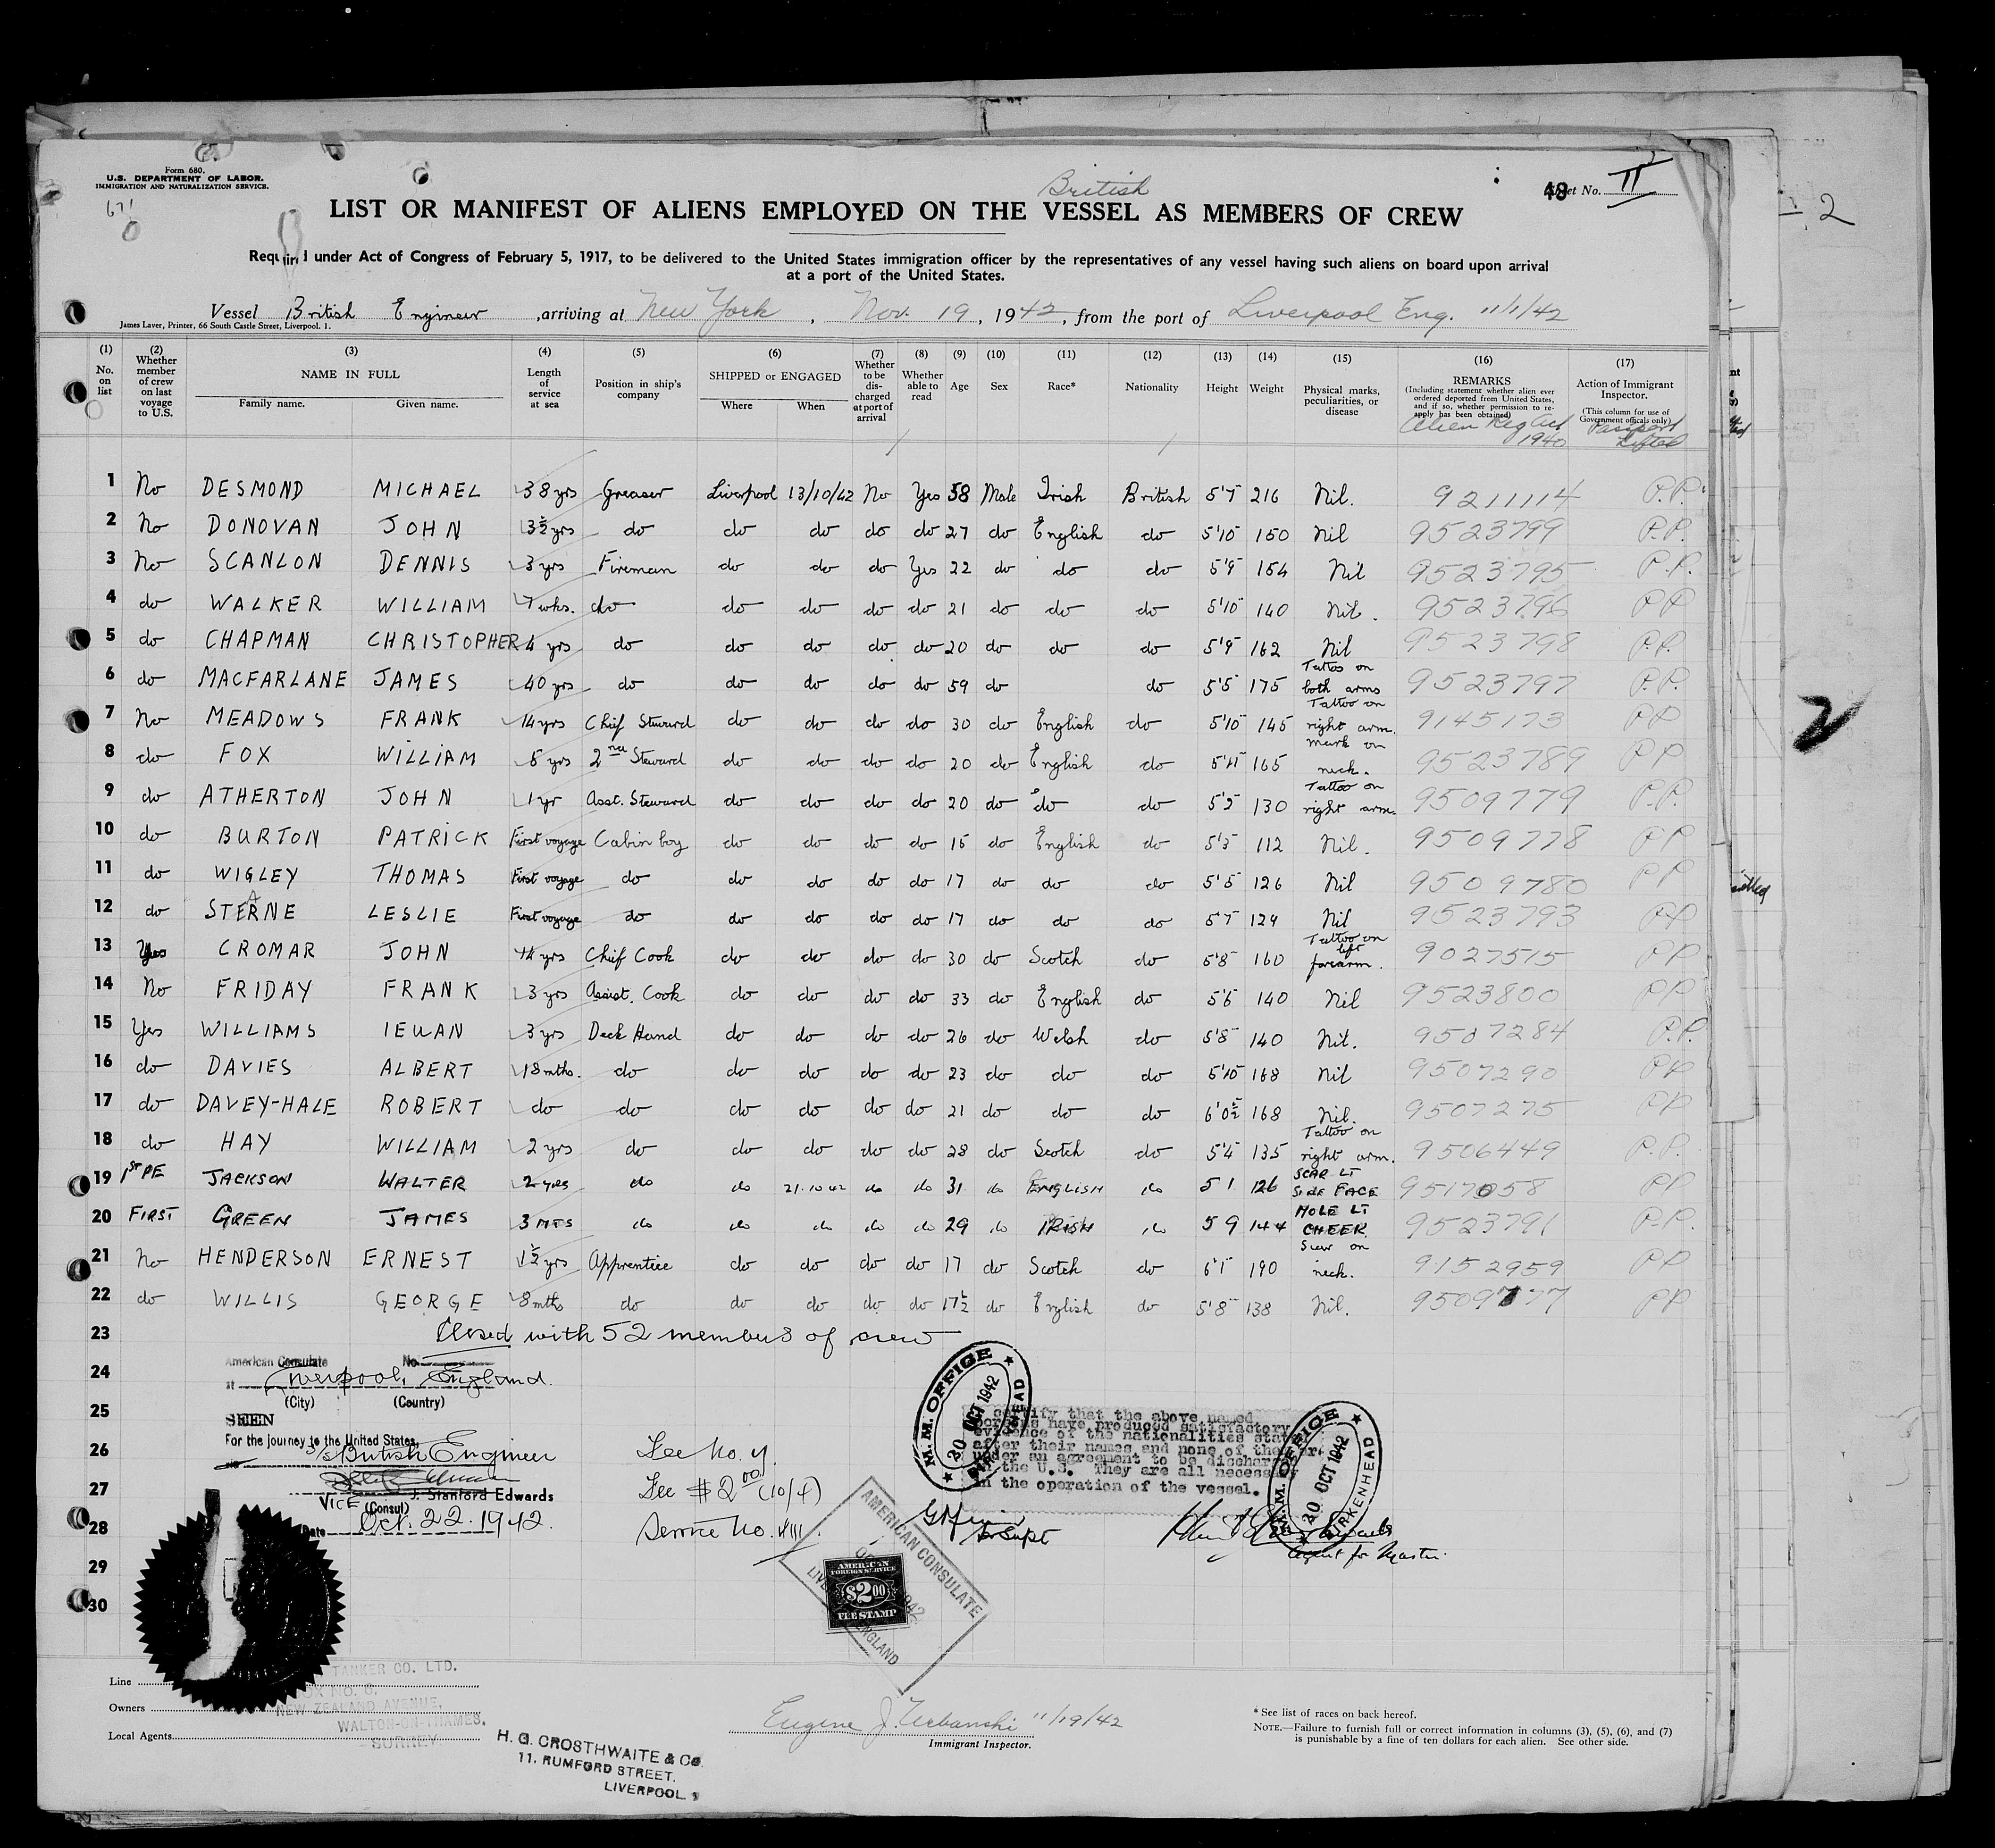 Form 680.
U.S. DEPARTMENT OF LABOR.
IMMIGRATION AND NATURALIZATION SERVICE.
671
0
Sheet No. II
British
LIST OR MANIFEST OF ALIENS EMPLOYED ON THE VESSEL AS MEMBERS OF CREW
Required under Act of Congress of February 5, 1917, to be delivered to the United States immigration officer by the representatives of any vessel having such aliens on board upon arrival
at a port of the United States.
Vessel British Engineer ,arriving at New York , Nov. 19 , 1942, from the port of Liverpool Eng. 11/1/42
James Laver, Printer, 66 South Castle Street, Liverpool. 1.
(1) No. on list
(2) Whether member of crew on last voyage to U.S.
(3) NAME IN FULL Family name. Given name.
(4) Length of service at sea
(5) Position in ship's company
(6) SHIPPED or ENGAGED Where When
(7) Whether to be discharged at port of arrival
(8) Whether able to read
(9) Age
(10) Sex
(11) Race*
(12) Nationality
(13) Height
(14) Weight
(15) Physical marks, peculiarities, or disease
(16) REMARKS (Including statement whether alien ever ordered deported from United States, and if so, whether permission to re-apply has been obtained)
Alien Reg Act 1940
(17) Action of Immigrant Inspector. (This column for use of Government officials only)
Passport Lifted
1 No DESMOND MICHAEL 38 yrs Greaser Liverpool 13/10/42 No Yes 58 Male Irish British 5'7 216 Nil. 9211114 P.P.
2 No DONOVAN JOHN 3½ yrs do do do do do 27 do English do 5'10 150 Nil 9523799 P.P.
3 No SCANLON DENNIS 3 yrs Fireman do do do Yes 22 do do do 5'9 154 Nil 9523795 P.P.
4 do WALKER WILLIAM 7 wks. do do do do do 21 do do do 5'10 140 Nil. 9523796 PP
5 do CHAPMAN CHRISTOPHER 4 yrs do do do do do 20 do do do 5'9 162 Nil 9523798 P.P.
6 do MACFARLANE JAMES 40 yrs do do do do do 59 do do 5'5 175 Tattoo on both arms 9523797 P.P.
7 No MEADOWS FRANK 14 yrs Chief Steward do do do do 30 do English do 5'10 145 Tattoo on right arm. 9145173 PP
8 do FOX WILLIAM 5 yrs 2nd Steward do do do do 20 do English do 5'11 165 mark on neck. 9523789 PP
9 do ATHERTON JOHN 1 yr Asst. Steward do do do do 20 do do do 5'5 130 Tattoo on right arm. 9509779 P.P.
10 do BURTON PATRICK First voyage Cabin boy do do do do 15 do English do 5'3 112 Nil. 9509778 PP
11 do WIGLEY THOMAS First voyage do do do do do 17 do do do 5'5 126 Nil 9509780 PP
12 do STERNE LESLIE First voyage do do do do do 17 do do do 5'7 129 Nil 9523793 PP
A
13 Yes CROMAR JOHN 14 yrs Chief Cook do do do do 30 do Scotch do 5'8 160 Tattoo on left forearm. 9027515 PP
14 No FRIDAY FRANK 3 yrs Assist. Cook do do do do 33 do English do 5'6 140 Nil 9523800 PP
15 Yes WILLIAMS IEUAN 3 yrs Deck Hand do do do do 26 do Welsh do 5'8 140 Nil. 9507284 P.P.
16 do DAVIES ALBERT 18 mths. do do do do do 23 do do do 5'10 168 Nil 9507290 PP
17 do DAVEY-HALE ROBERT do do do do do do 21 do do do 6'0½ 168 Nil. 9507275 PP
18 do HAY WILLIAM 2 yrs do do do do do 28 do Scotch do 5'4 135 Tattoo on right arm. 9506449 P.P.
19 JACKSON WALTER 2 yrs do do 21.10.42 do do 31 do ENGLISH do 5 1 126 SCAR LT SIDE FACE 9517058 PP
20 FIRST GREEN JAMES 3 MTS do do do do do 29 do IRISH do 5 9 144 MOLE LT CHEEK 9523791 P.P.
21 No HENDERSON ERNEST 1½ yrs Apprentice do do do do 17 do Scotch do 6'1 190 Scar on neck. 9152959 PP
22 do WILLIS GEORGE 8 mths do do do do do 17½ do English do 5'8 138 Nil. 9509777 PP
23 Closed with 52 members of crew
24
25
26
27
28
29
30
American Consulate No.
at Liverpool, England.
(City) (Country)
SEEN
For the journey to the United States
S/s British Engineer
J. Stanford Edwards
VICE (Consul)
Date Oct. 22. 1942.
Fee No. 4
Fee $2.00 (10/4)
Service No.
M.M. OFFICE
20 OCT 1942
BIRKENHEAD
I certify that the above named
persons have produced satisfactory
evidence of the nationalities stated
after their names and none of them are
under an agreement to be discharged
in the U.S. They are all necessary
in the operation of the vessel.
M.M. OFFICE
20 OCT 1942
BIRKENHEAD
for Supt
Agent for Master.
AMERICAN CONSULATE
1942
LIVERPOOL ENGLAND
AMERICAN
FOREIGN SERVICE
$2.00
FEE STAMP
Line
Owners
Local Agents
TANKER CO. LTD.
BOX NO. 6.
NEW ZEALAND AVENUE,
WALTON-ON-THAMES,
SURREY
H. G. CROSTHWAITE & Co
11, RUMFORD STREET.
LIVERPOOL
Eugene J. Urbanski 11/19/42
Immigrant Inspector.
* See list of races on back hereof.
NOTE.—Failure to furnish full or correct information in columns (3), (5), (6), and (7)
is punishable by a fine of ten dollars for each alien. See other side.
2
2